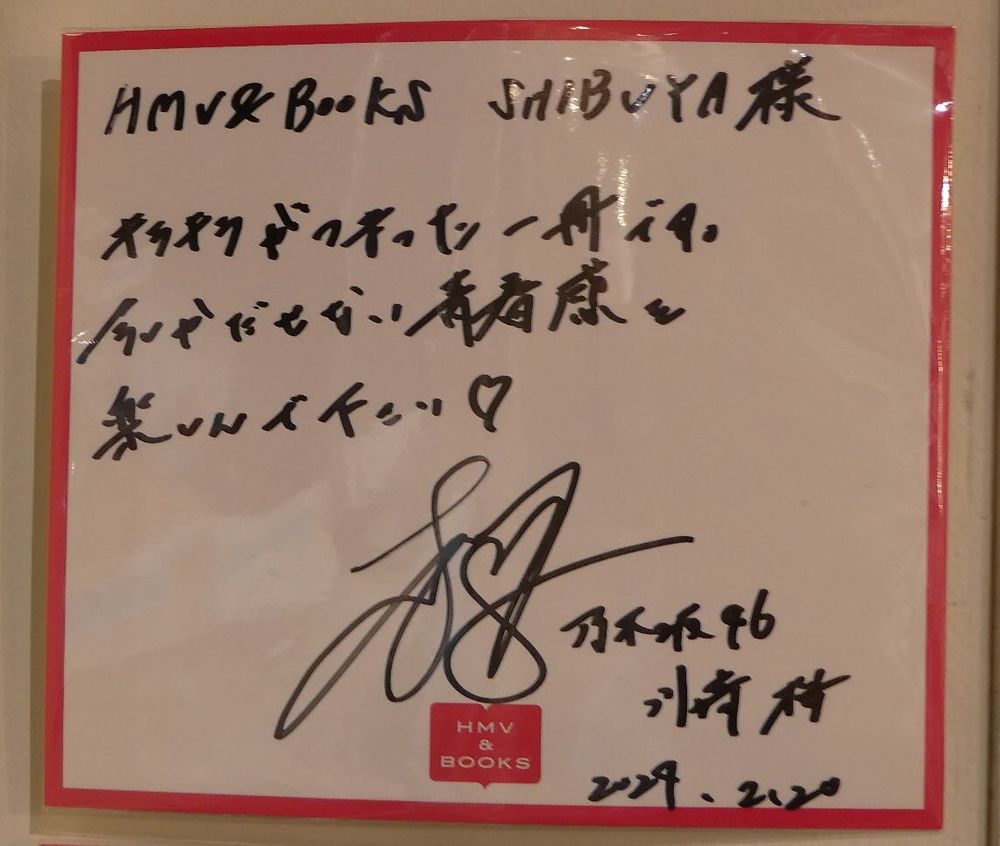 HMV&BOOKS SHIBUYA様
キラキラがつまった一冊です。
今しかだせない青春感を
楽しんで下さい♡
乃木坂46
川﨑 桜
HMV
&
BOOKS
2024.2.20